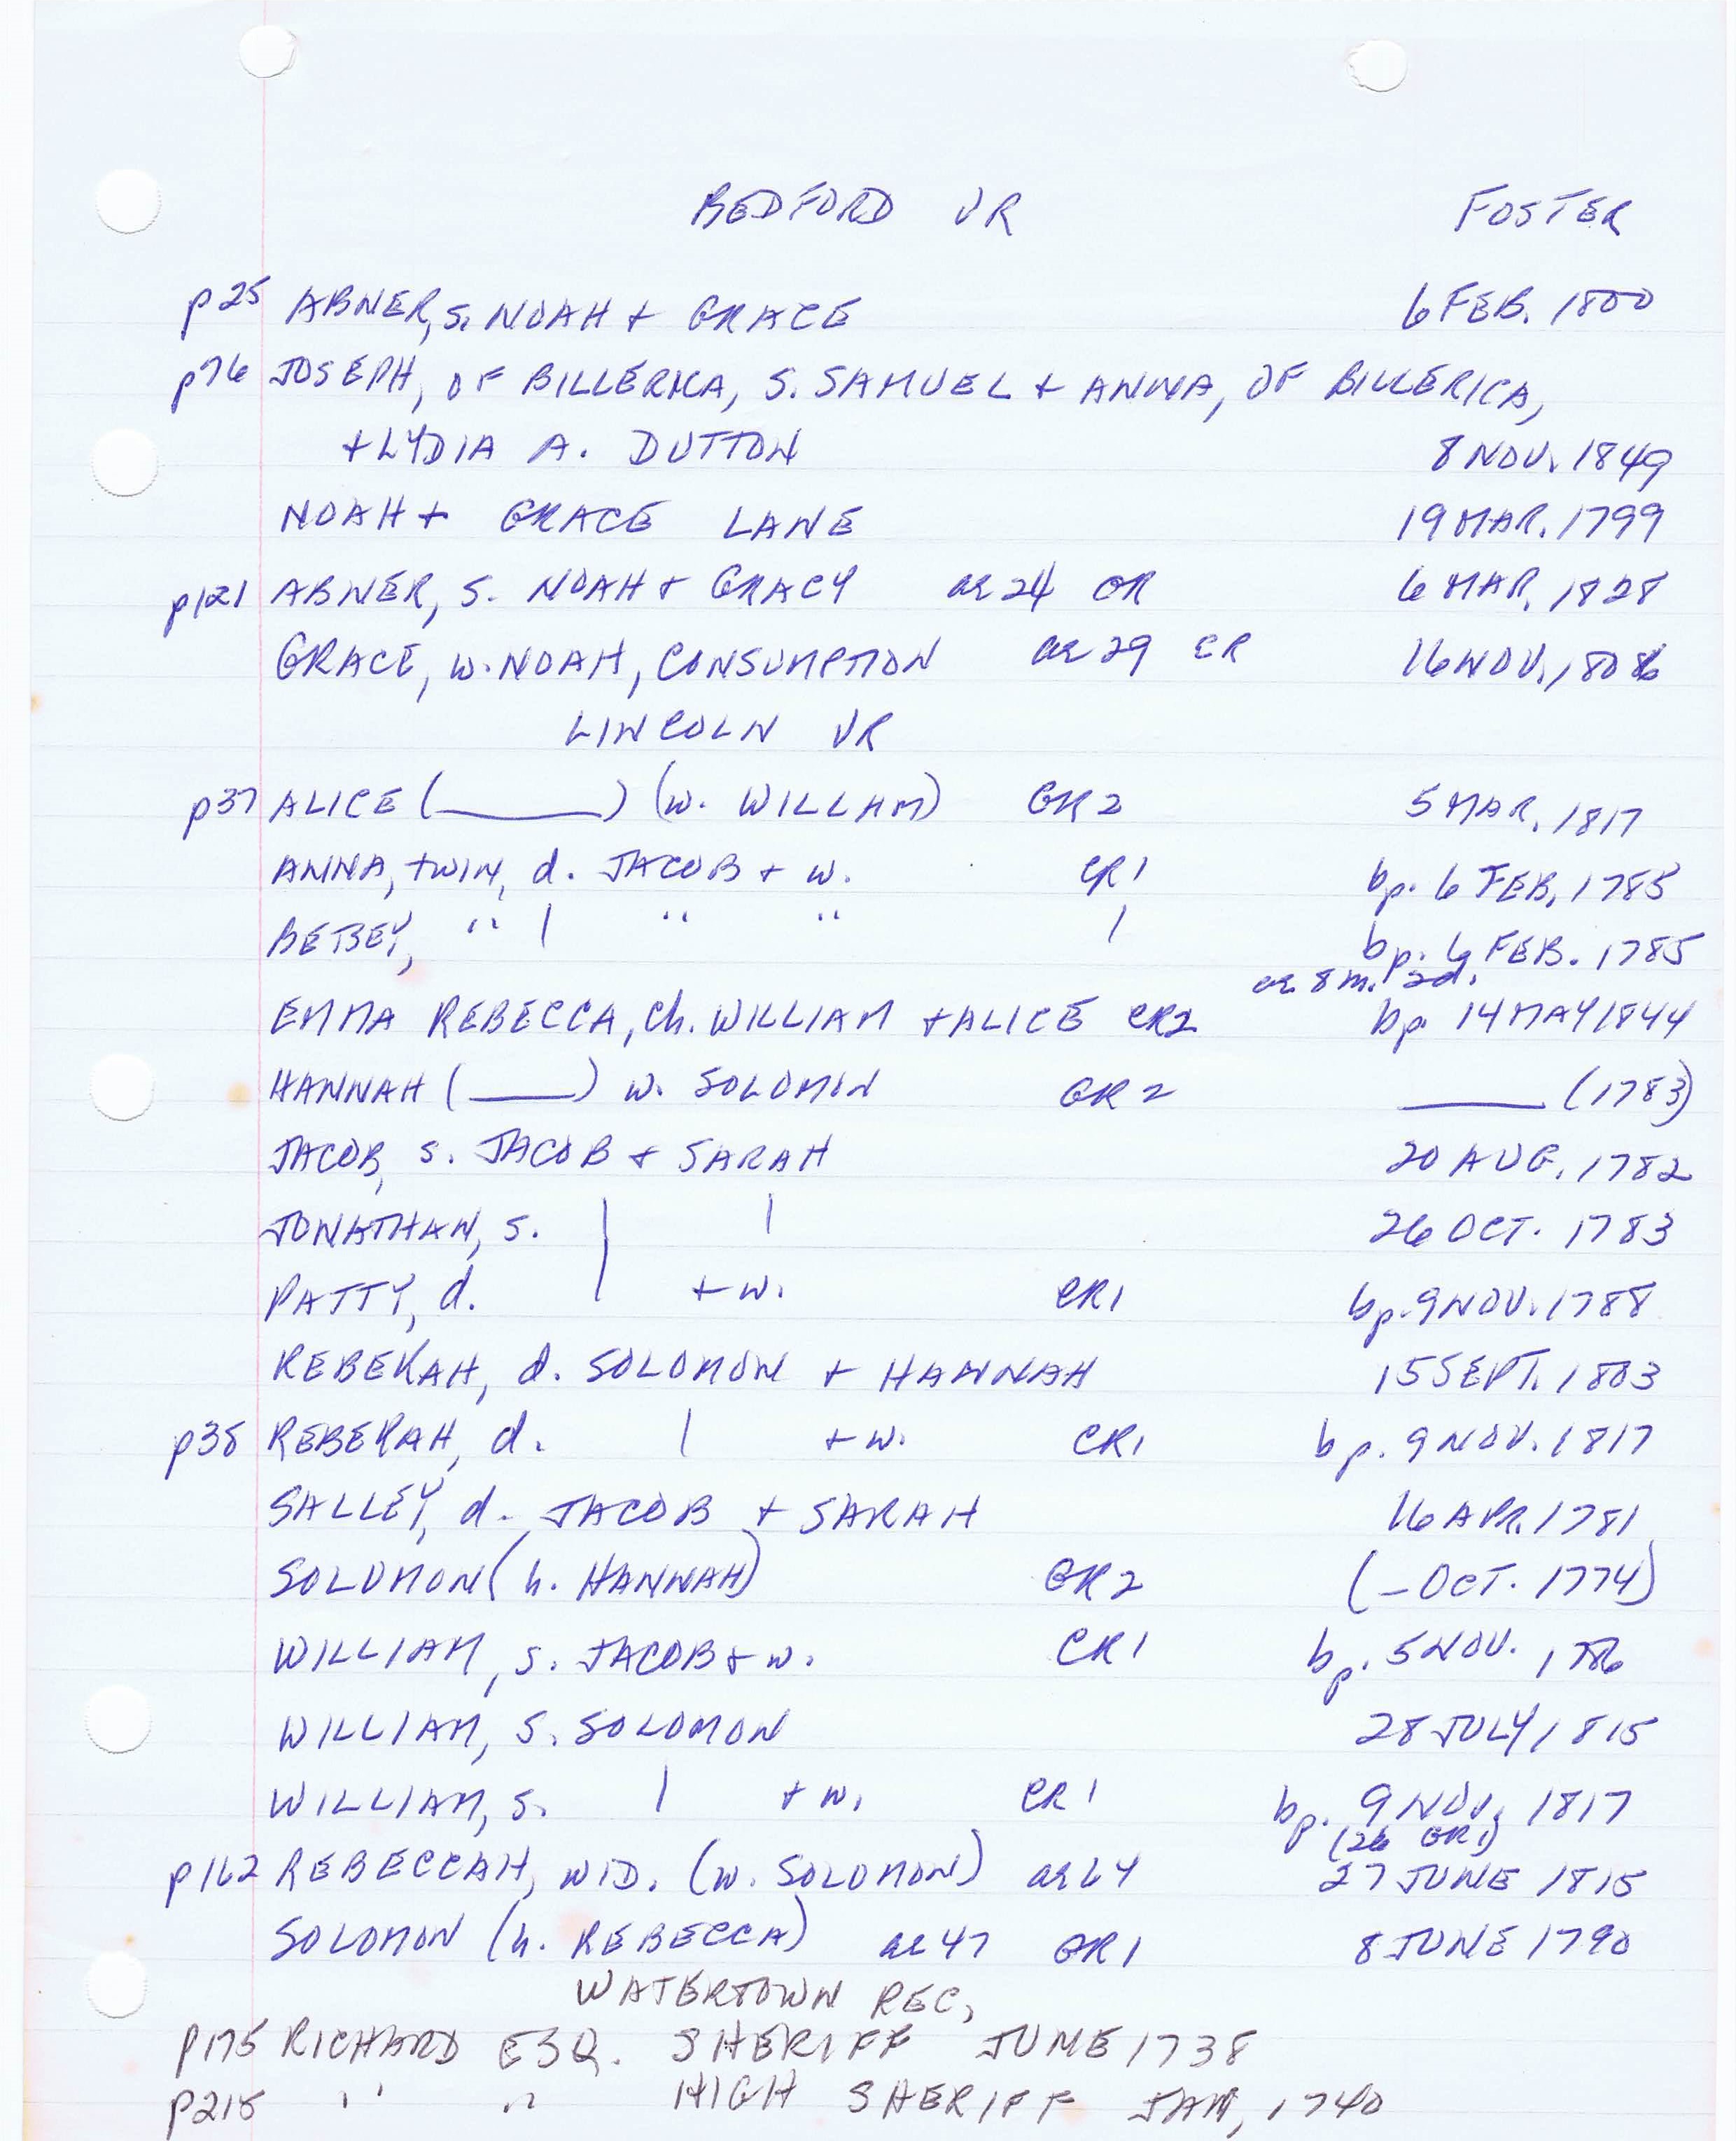 BEDFORD VR FOSTER
p25 ABNER, S. NOAH + GRACE 6 FEB. 1800
p76 JOSEPH, OF BILLERICA, S. SAMUEL + ANNA, OF BILLERICA,
+ LYDIA A. DUTTON 8 NOV. 1849
NOAH + GRACE LANE 19 MAR. 1799
p121 ABNER, S. NOAH + GRACY ae 24 GR 6 MAR, 1828
GRACE, w. NOAH, CONSUMPTION ae 29 CR 16 NOV, 1806
LINCOLN VR
p37 ALICE (____) (w. WILLIAM) GR 2 5 MAR, 1817
ANNA, twin, d. JACOB + w. CR1 bp. 6 FEB, 1785
BETSEY, " | " " | bp. 6 FEB. 1785
ae 8 m. 2d.
EMMA REBECCA, ch. WILLIAM + ALICE CR2 bp 14 MAY 1844
HANNAH (____) w. SOLOMON GR 2 ____ (1783)
JACOB, S. JACOB + SARAH 20 AUG, 1782
JONATHAN, S. | | 26 OCT. 1783
PATTY, d. | + w. CR1 bp. 9 NOV. 1788
REBEKAH, d. SOLOMON + HANNAH 15 SEPT. 1803
p38 REBEKAH, d. | + w. CR1 bp. 9 NOV. 1817
SALLEY, d. JACOB + SARAH 16 APR. 1781
SOLOMON (h. HANNAH) GR 2 (– OCT. 1774)
WILLIAM, S. JACOB + w. CR1 bp. 5 NOV. 1786
WILLIAM, S. SOLOMON 28 JULY 1815
WILLIAM, S. | + w, CR1 bp. 9 NOV, 1817
(26 GR1)
p162 REBECCAH, WID. (w. SOLOMON) ae 64 27 JUNE 1815
SOLOMON (h. REBECCA) ae 47 GR1 8 JUNE 1790
WATERTOWN REC,
p175 RICHARD ESQ. SHERIFF JUNE 1738
p215 " " HIGH SHERIFF JAN, 1740